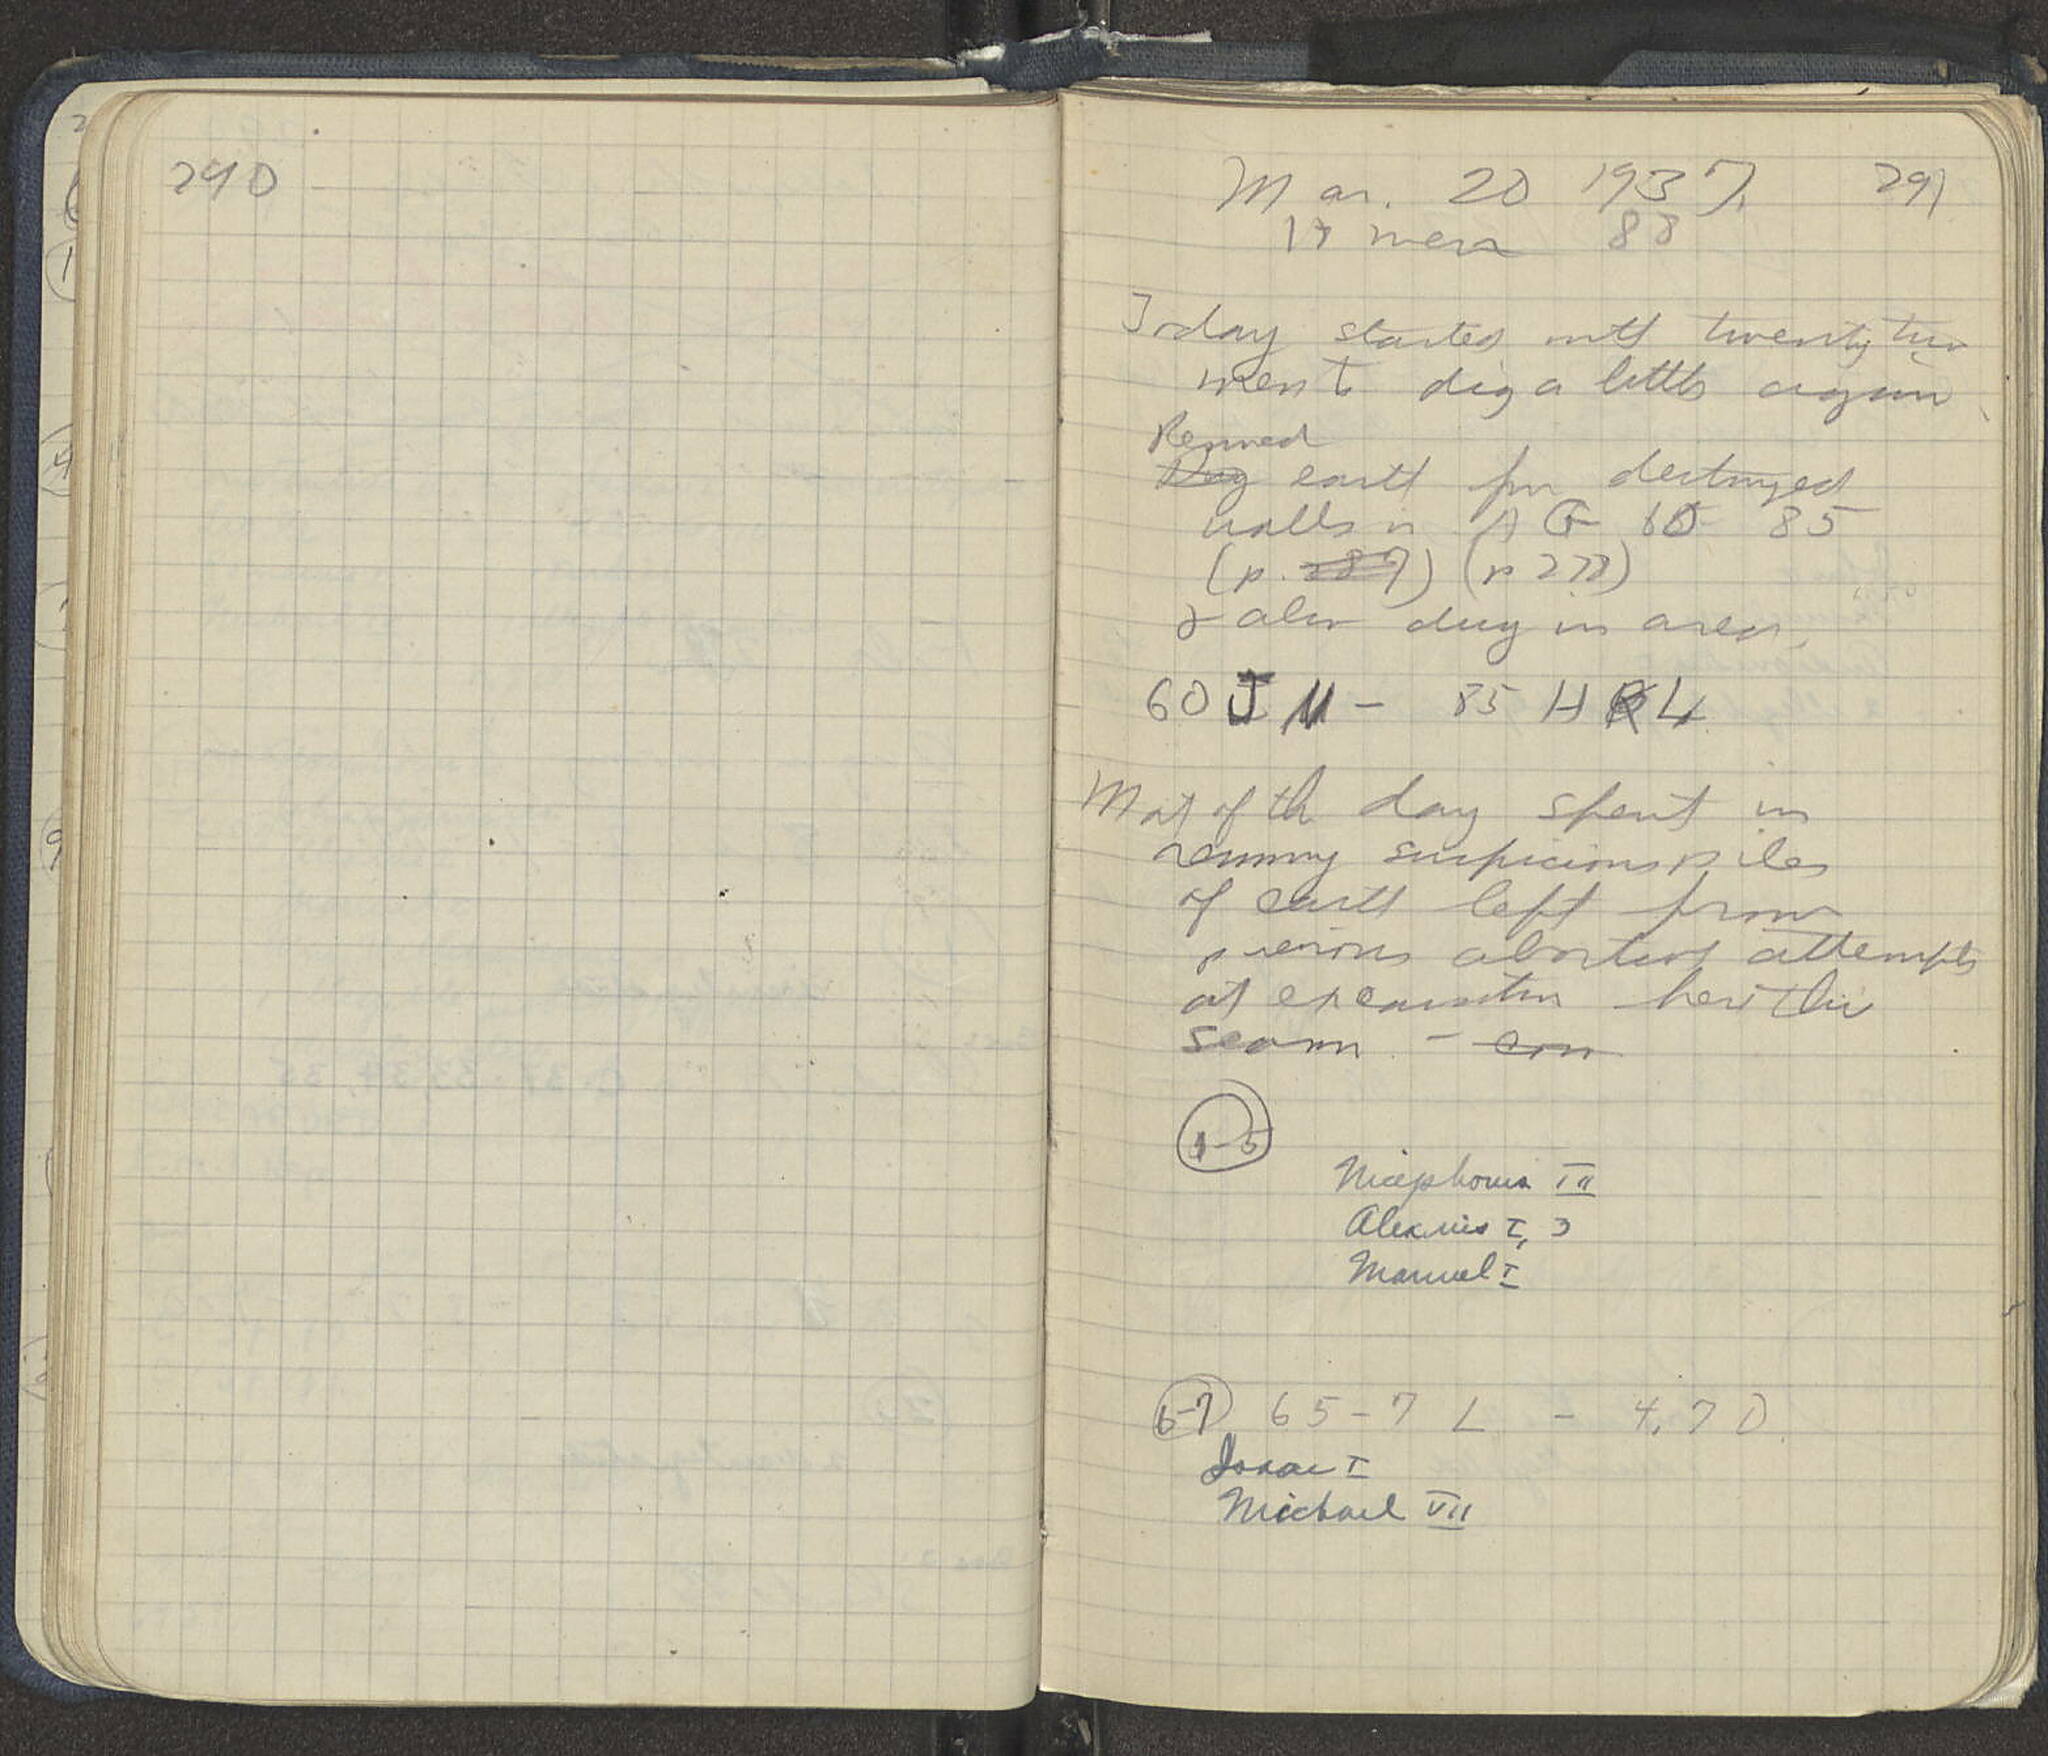 290
Mar. 20 1937. 291
17 men 88
Today started with twenty two
men to dig a little again.
Removed
Dug earth for destroyed
walls in A G 60 85
(p. 287) (p 278)
& also dug in area,
60 J M - 85 H K L
Most of the day spent in
removing suspicious piles
of earth left from
previous abortive attempts
at excavation here this
season. - con
1-5
Nicephorus III
Alexius I, 3
Manuel I
6-7 65-7 L - 4.70
Isaac I
Michael VII